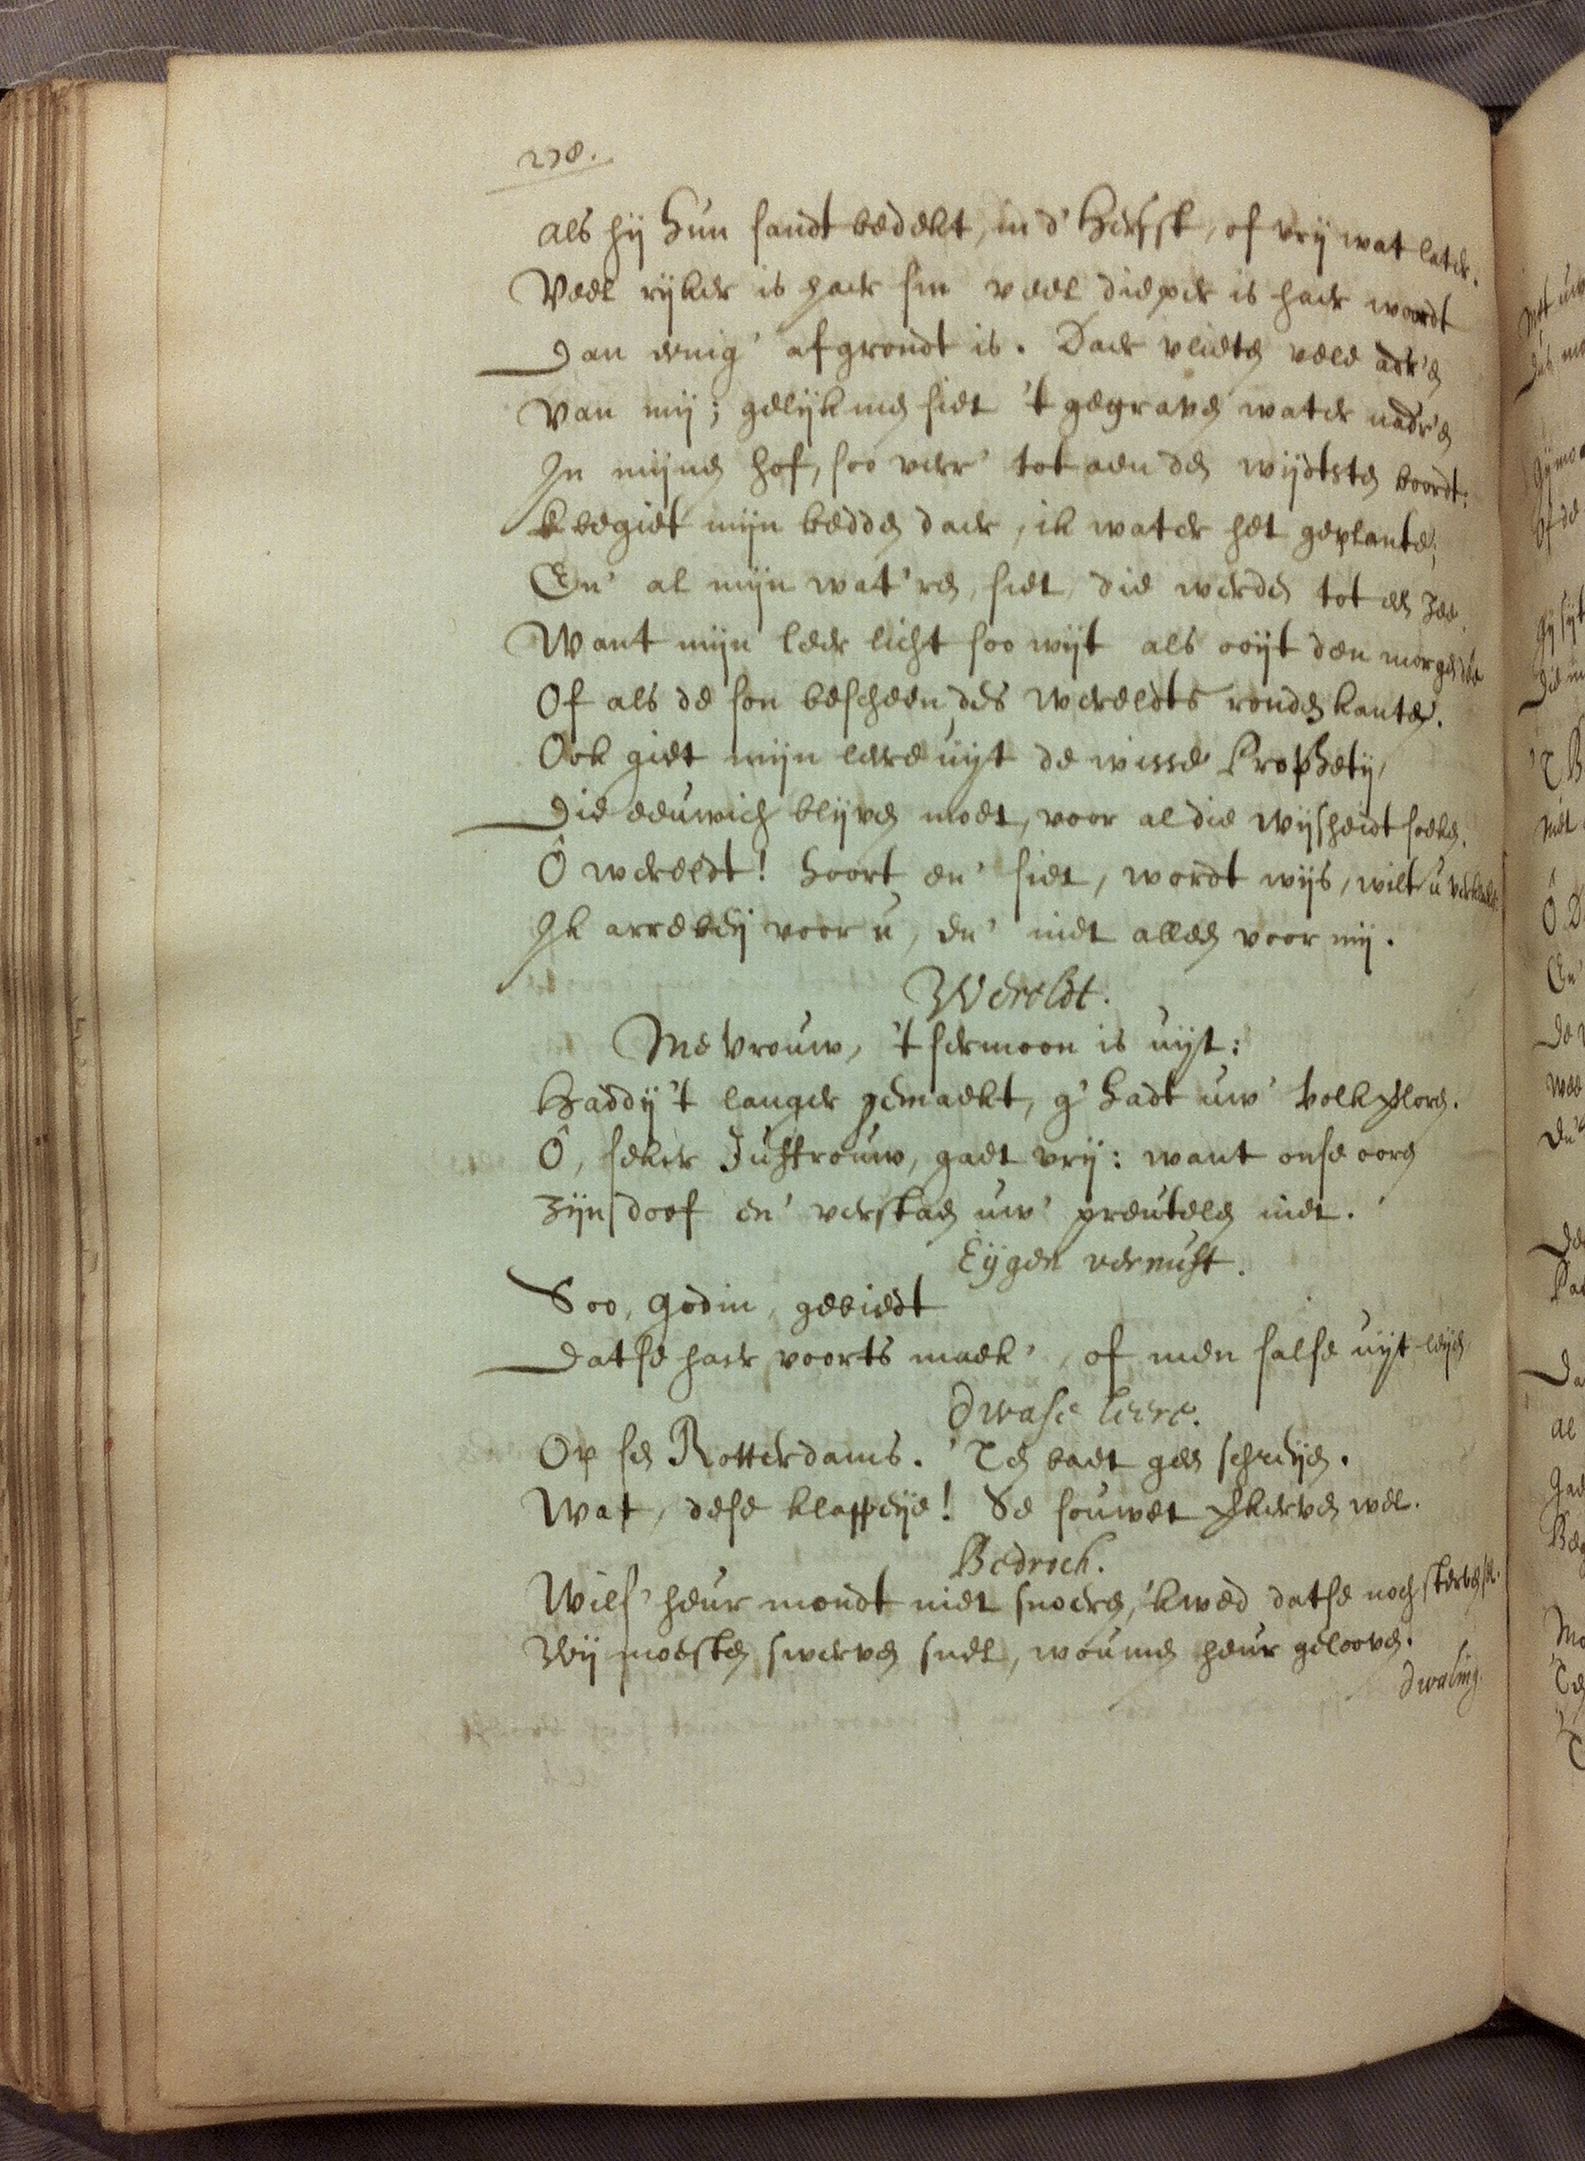 278.
Als hij hun sandt bedekt, in d' Herfst, of vrij wat later.
Veel rijker is haer sin veel dieper is haer woordt
Dan eenig' afgrondt is. Daer vlieten vele adr'en
Van mij; gelijk men siet 't gegraven water nadr'en
In mijnen hof, soo verr' tot aen den wijdtsten boordt:
K begiet mijn bedden daer, ik water het geplante;
En' al mijn wat'ren, siet, die werden tot een zee.
Want mijn leer licht soo wijt als ooijt den morgen dee
Of als de son bescheen des werelts ronden kante.
Ook giet mijn leere uijt de wisse Prophetij,
Die eeuwich blijven moet, voor al die wijsheidt soeken.
Ô wereldt! hoort en' siet, wordt wijs, wilt u
Ik arrebeij voor u, en' niet alleen voor mij.
Wereldt.
Me vrouw, 't sermoon is uijt:
Haddij't langer gemaekt, g' hadt uw' volk verloren.
Ô, seker Juffrouw, gaet vrij: want onse ooren
Zijn doof en' verstaen uw' preutelen niet.
Eijgen vernuft.
Soo, godin, gebiedt
Datse haer voorts maek', of men salse uijt leijen
Dwase leere.
Op sen Rotterdams. 'Ten baet geen schreijen.
Wat, dese klappeije! Se souwet sterven wel.
Bedroch.
Wils' heur mondt niet snoeren, 'kwed datse noch sterven sel.
Wij moesten swerven snel, wou men heur gelooven.
Dwaling.